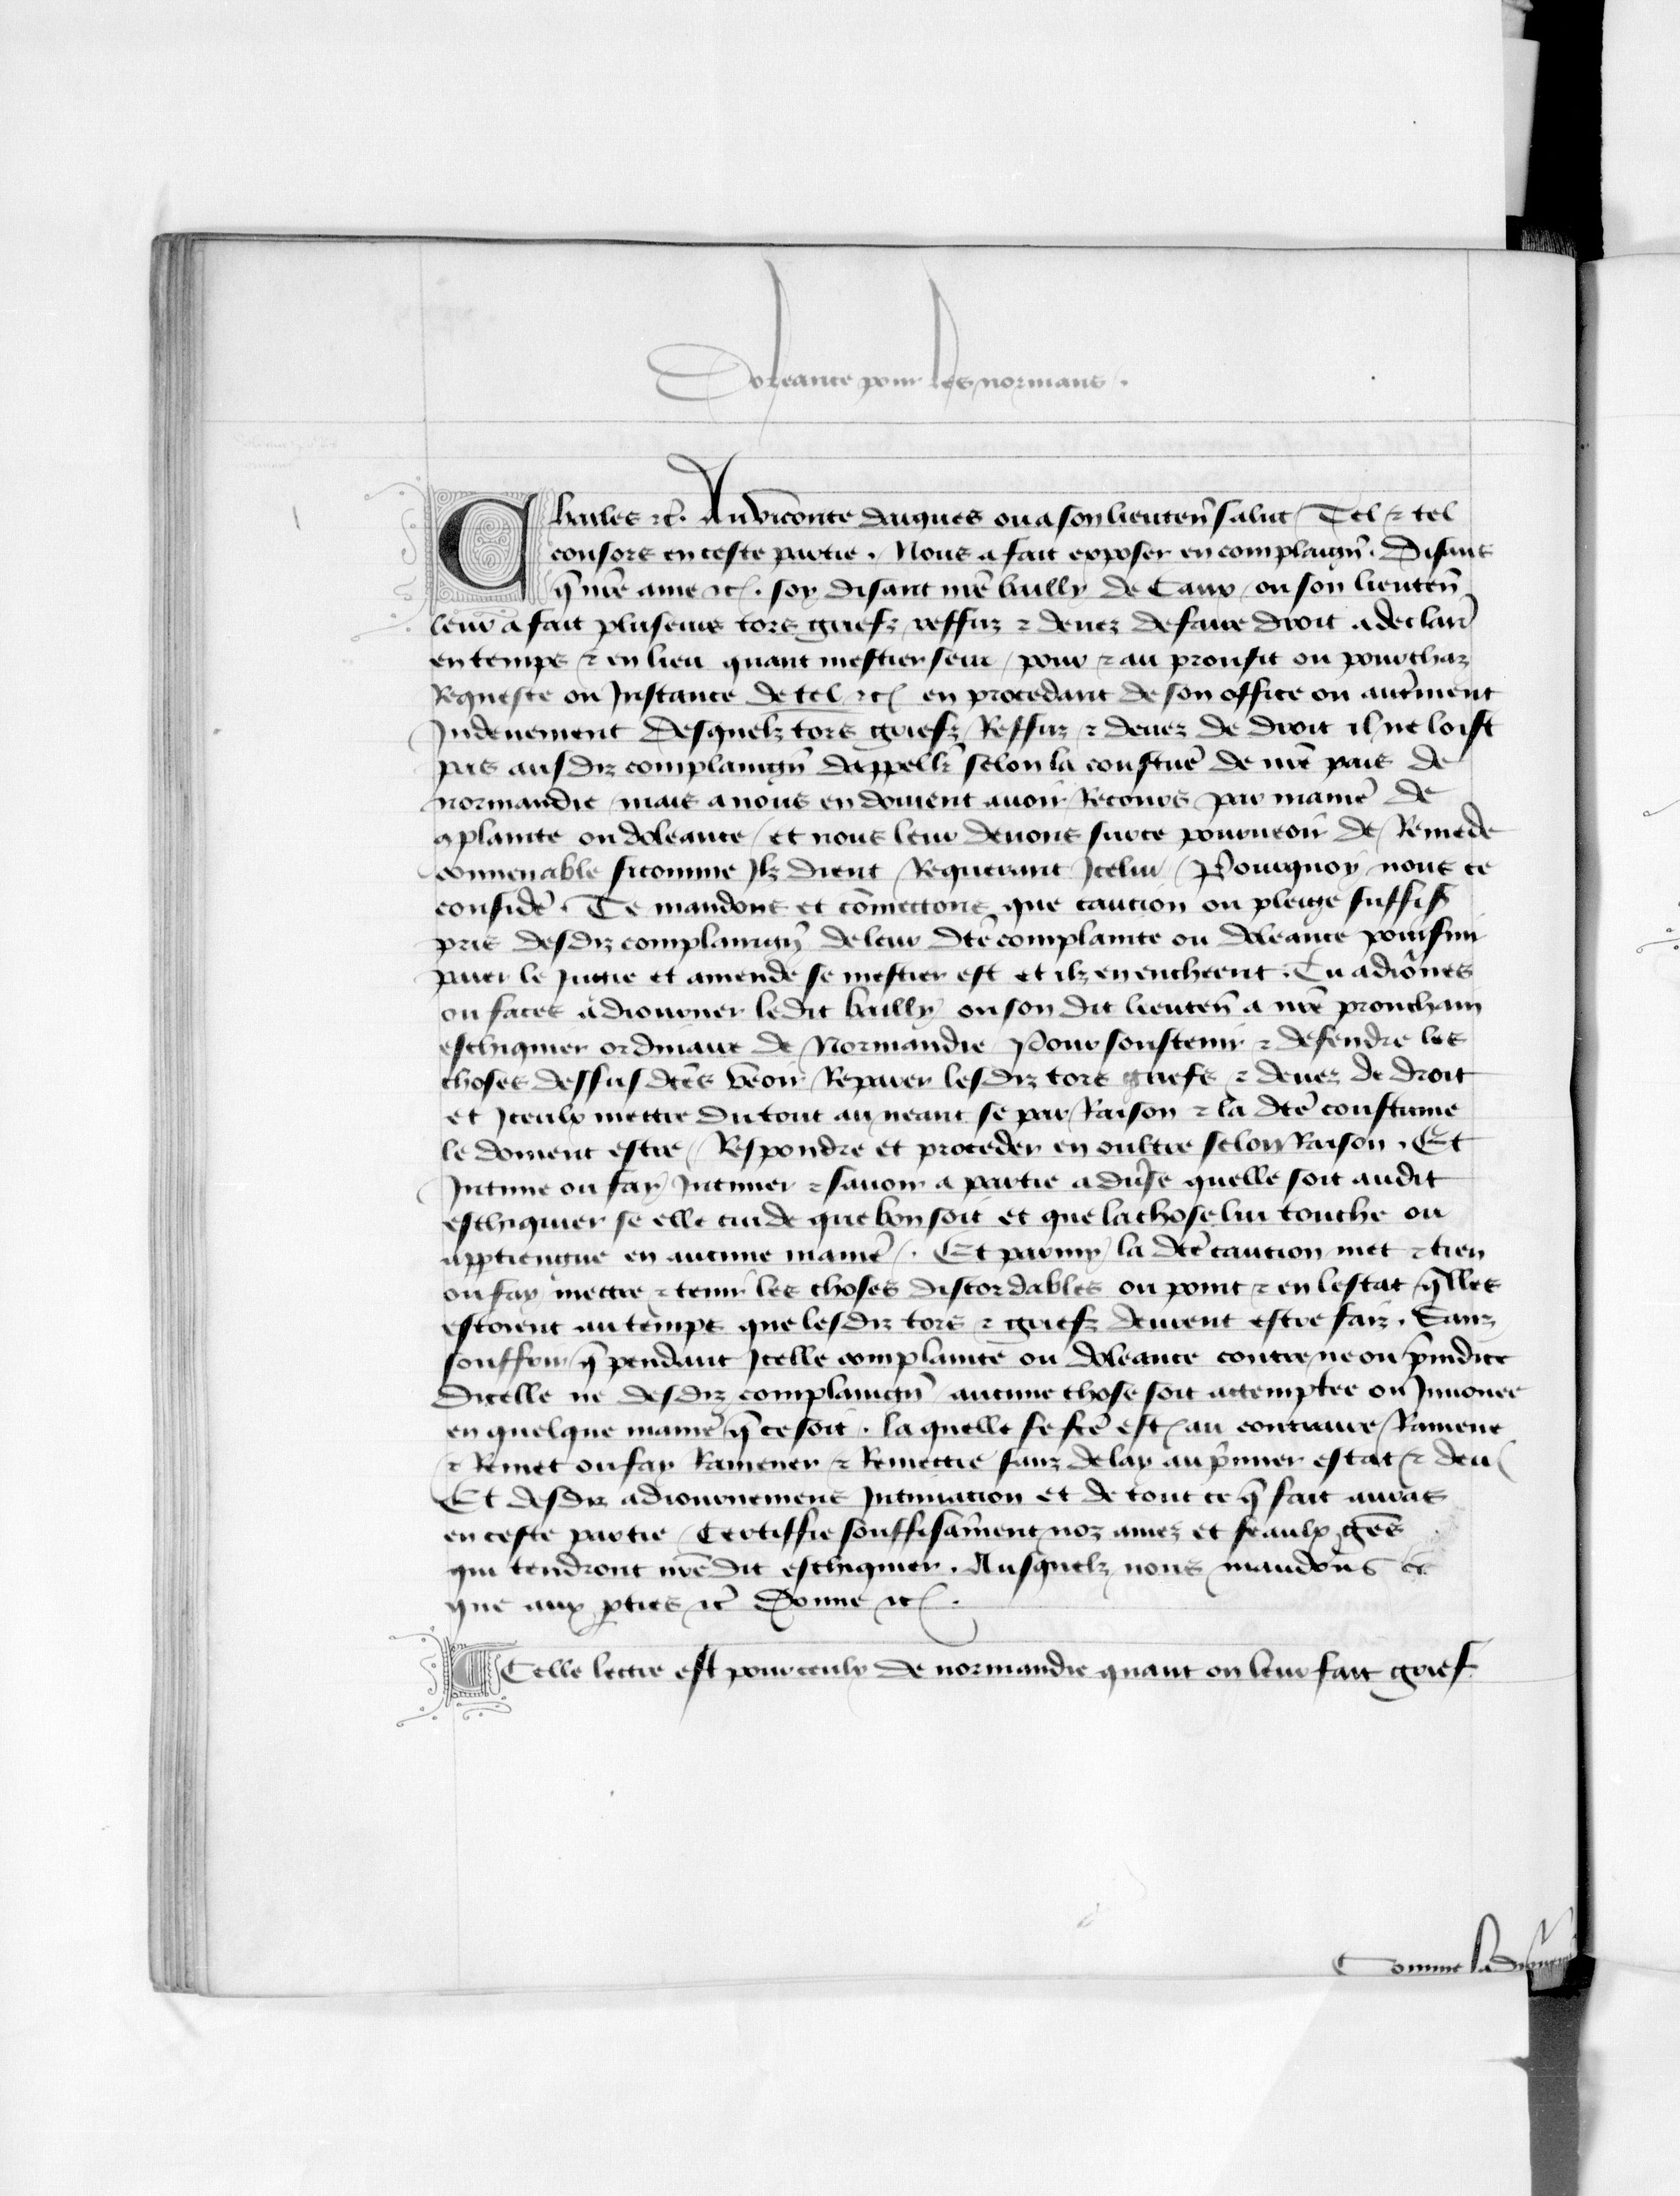 Doleance pour les normans .
Charles ⁊c̃ . Au viconte darques ou a son lieuten̄ salut Tel ⁊ tel
consors en ceste partie . Nous a fait exposer en complaign̄ . Disans
q̄ nr̄e ame ⁊c . soy disant nr̄e bailly de Caux / ou son lieuten̄
leur a fait plusieurs tors griefz reffuz ⁊ deuez de faire droit a declair̄
en temps ⁊ en lieu quant mestier sera / pour ⁊ au prouffit ou pourchaz
Requeste ou Instance de tel ⁊c en procedant de son office ou autr̄ment
Indeuement Desquelz tors griefz Reffuz ⁊ deuez de droit il ne loist
pas ausdiz complaingn̄ dappell̄r selon la coustūe de nr̄e pais de
normandie mais a nous en doiuent auoir Recours par manie᷑ de
ꝯplainte ou doleance / et nous leur deuons surce pourueoir de Remede
conuenable sicomme Ilz dient Requerant Icelui / Pourquoy nous ce
considē . Te mandons et cōmectons que caucion ou pleige suffis̄
pris desdiz complaingn̄ de leur dc̄e complainte ou doleance poursuir
paier le Iugie et amende se mestier est et ilz en encheent . Tu adiōnes
ou faces adiourner ledit bailly ou son dit lieuten̄ a nr̄e prouchain
eschiquier ordinaire de Normandie Pour soustenir ⁊ defendre les
choses dessus dc̄es veoir Reparer lesdiz tors griefs ⁊ deuez de droit
et Iceulx mettre du tout au neant se par Raison ⁊ la dc̄e coustume
le doiuent estre / Respondre et proceder en oultre selon Raison . Et
Intime ou fay Intimer ⁊ sauoir a partie adūse quelle soit audit
eschiquier se elle cuide que bon soit et que la chose lui touche ou
apptiengne en aucune manie᷑ . Et parmy la dc̄e caucion met ⁊ tien
ou fay mettre ⁊ tenir les choses discordables ou point ⁊ en lestat q̄lles
estoient au temps que lesdiz tors ⁊ griefz deurent estre faiz . Sanz
souffrir q̄ pendant Icelle complainte ou doleance contre ne ou p̄iudice
dicelle ne desdiz complaingn̄ aucune chose soit attemptee ou Innouee
en quelque manie᷑ q̄ ce soit . la quelle se fc̄e est au contraire Ramene
⁊ Remet ou fay Ramener ⁊ Remettre sanz delay au p̄mier estat ⁊ deu
Et desdiz adiournemens Intimacion et de tout ce q̄ fait auras
en ceste partie / Certiffie souffisam̄ent noz amez et feaulx gēs
qui tendront nr̄e dit eschiquier . Ausquelz nous mandons ⁊c
que aux ꝑties ⁊c̃ Donne ⁊c .
Celle lettre est pour ceulx de normandie quant on leur fait grief
Comme